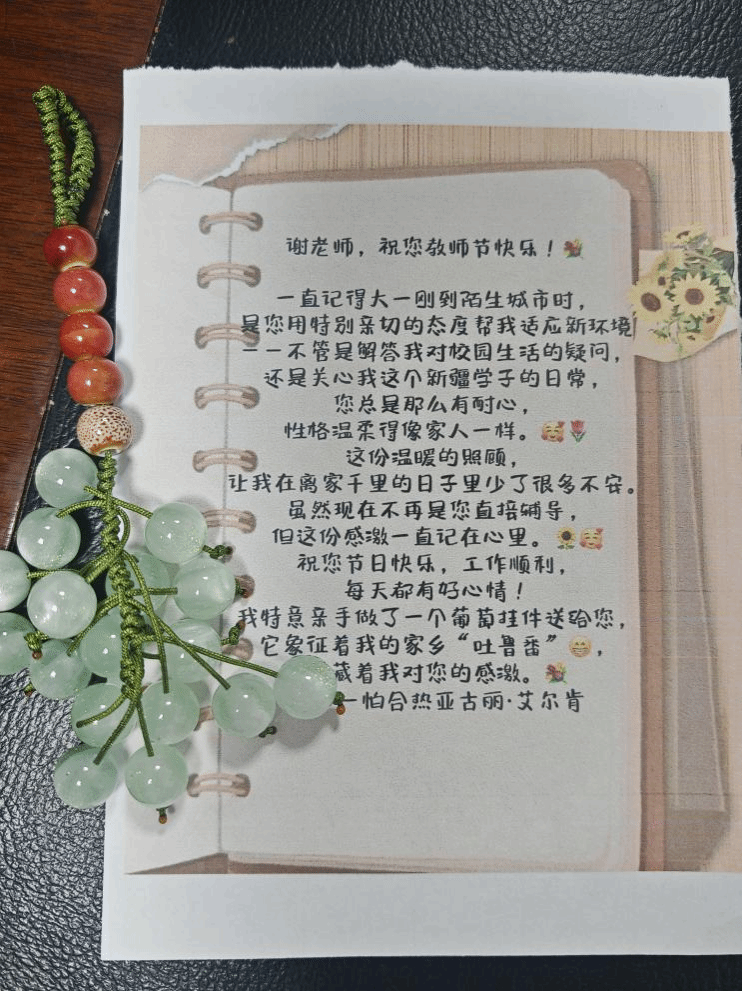 谢老师，祝您教师节快乐！💐
一直记得大一刚到陌生城市时，
是您用特别亲切的态度帮我适应新环境
——不管是解答我对校园生活的疑问，
还是关心我这个新疆学子的日常，
您总是那么有耐心，
性格温柔得像家人一样。🥰🌷
这份温暖的照顾，
让我在离家千里的日子里少了很多不安。
虽然现在不再是您直接辅导，
但这份感激一直记在心里。🌻🥰
祝您节日快乐，工作顺利，
每天都有好心情！
我特意亲手做了一个葡萄挂件送给您，
它象征着我的家乡“吐鲁番”😁，
藏着我对您的感激。💐
—帕合热亚古丽·艾尔肯